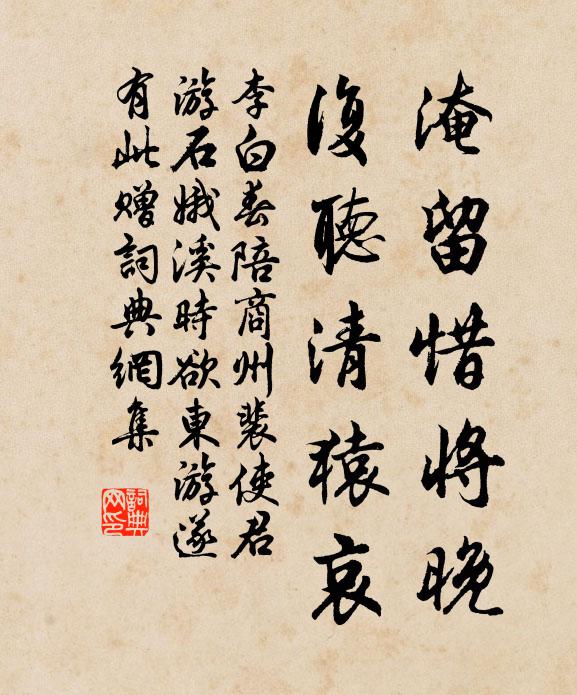 淹留惜將晚
復聽清猿哀
李白春陪商州裴使君
游石娥溪時欲東游遂
有此贈詞典網集
詞典
网印